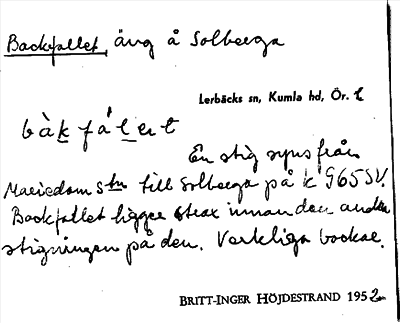 Backfallet, äng å Solberga
Lerbäcks sn, Kumla hd, Ör. l
bàkfálet
En stig syns från
Mariedam stn till Solberga på k 965 SV.
Backfallet ligger strax innan den andra
stigningen på den. Verkliga backar.
BRITT-INGER HÖJDESTRAND 1952